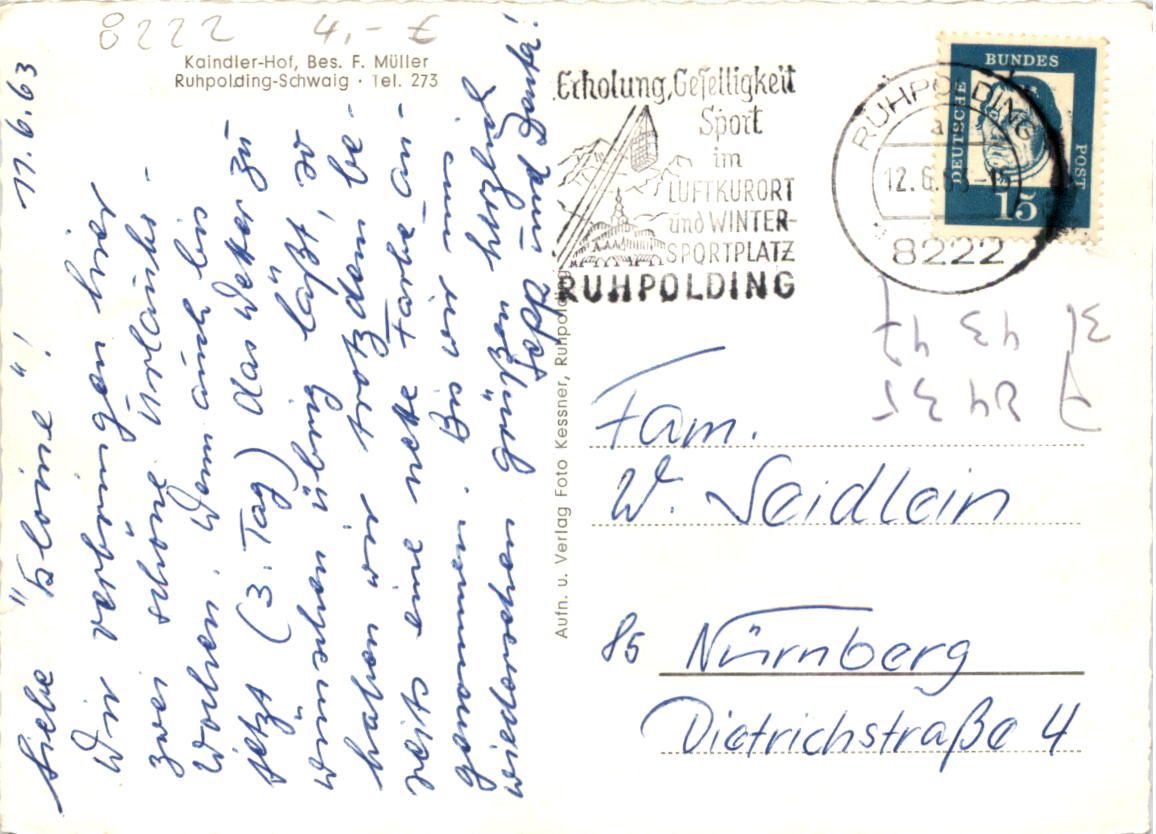 8222 4,- €
Kaindler-Hof, Bes. F. Müller
Ruhpolding-Schwaig · Tel. 273
11.6.63
Liebe "Kleine"!
Wir verbringen hier
zwei schöne Urlaubs-
wochen. Wenn auch bis
jetzt (3. Tag) das Wetter zu
wünschen übrig läßt, so
haben wir trotzdem be-
reits eine nette Farbe an-
genommen. Bis wir uns
wiedersehen grüßen herzlich
Sepp und Danta!
Erholung, Geselligkeit
Sport
im
LUFTKURORT
und WINTER-
SPORTPLATZ
RUHPOLDING
RUHPOLDING
a
12.6.63-15
8222
DEUTSCHE
BUNDES
POST
15
Aufn. u. Verlag Foto Kessner, Ruhpolding
Fam.
W. Seidlein
85 Nürnberg
Dietrichstraße 4